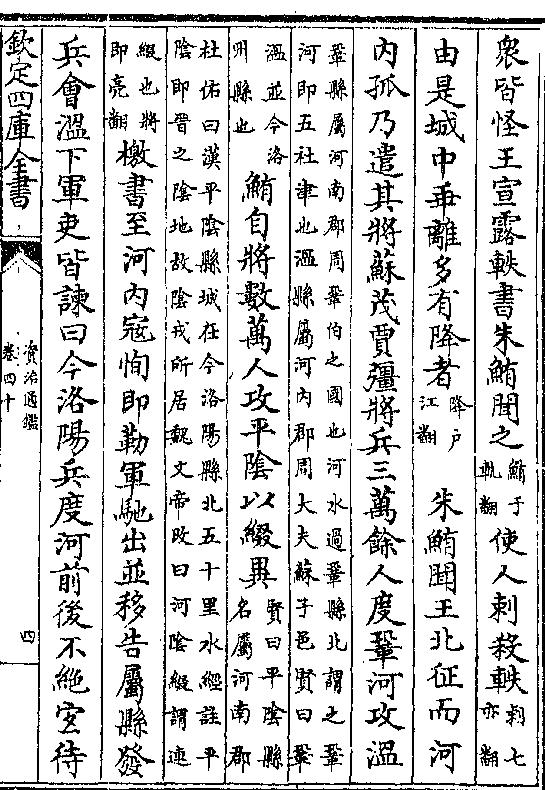 衆皆怪王宣露軼書朱鮪聞之鮪于軌翻使人刺殺軼刺七亦翻
由是城中乖離多有降者降户江翻朱鮪聞王北征而河
内孤乃遣其將蘇茂賈彊將兵三萬餘人度鞏河攻溫
鞏縣屬河南郡周鞏伯之國也河水過鞏縣北謂之鞏
河即五社津也溫縣屬河内郡周大夫蘇子邑賢曰鞏
溫並今洛州縣也鮪自將數萬人攻平陰以綴異賢曰平陰縣名屬河南郡
杜佑曰漢平陰縣城在今洛陽縣北五十里水經註平
陰即晉之陰地故陰戎所居魏文帝改曰河陰綴謂連
綴也將即亮翻檄書至河内寇恂即勒軍馳出並移告屬縣發
兵會溫下軍吏皆諫曰今洛陽兵度河前後不絶宜待
欽定四庫全書
資治通鑑
卷四十
四